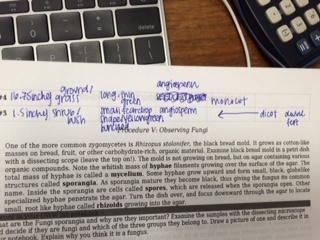 angiosperm
#4 16.75 inches ground/ grass long, thin green monocot
#3 1.5 inches shrub/ bush small teardrop shape angiosperm dicot
Procedure V: Observing Fungi
One of the more common zygomycetes is Rhizopus stolonifer, the black bread mold. It grows as cotton-like
masses on bread, fruit, or other carbohydrate-rich, organic material. Examine black bread mold in a petri dish
with a dissecting scope (leave the top on!). The mold is not growing on bread, but on agar containing various
organic compounds. Note the whitish mass of hyphae filaments growing over the surface of the agar. The
total mass of hyphae is called a mycelium. Some hyphae grow upward and form small, black, globelike
structures called sporangia. As sporangia mature they become black, thus giving the fungus its common
name. Inside the sporangia are cells called spores, which are released when the sporangia open. Other
specialized hyphae penetrate the agar. Turn the dish over, and focus downward through the agar to locate
small, root like hyphae called rhizoids growing into the agar.
at are the Fungi sporangia and why are they important? Examine the samples with the dissecting microscope
d decide if they are fungi and which of the three groups they belong to. Draw a picture of one and describe it in
r notebook. Explain why you think it is a fungus.